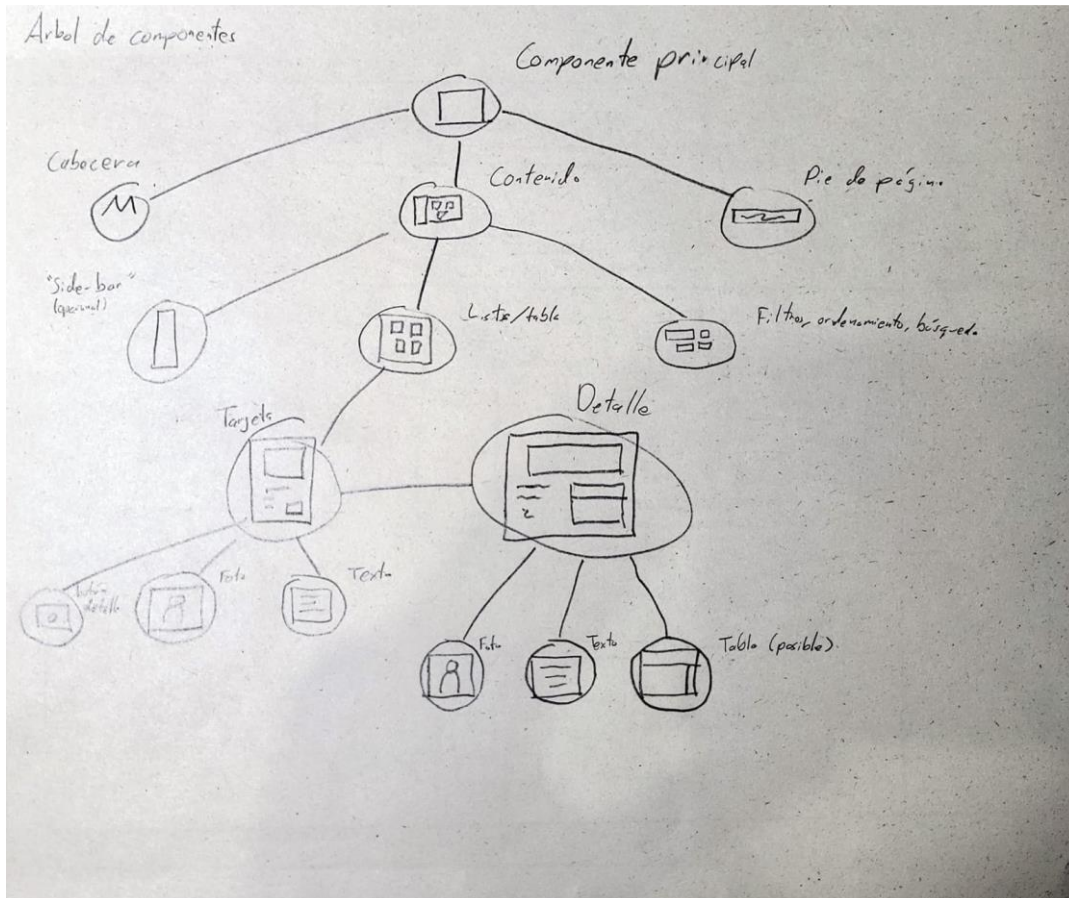 Arbol de componentes
Componente principal
Cabecera
Contenido
Pie de página
"Side-bar"
(opcional)
Lista/tabla
Filtros, ordenamiento, búsqueda
Tarjeta
Detalle
botón
detalle
Foto
Texto
Foto
Texto
Tabla (posible)